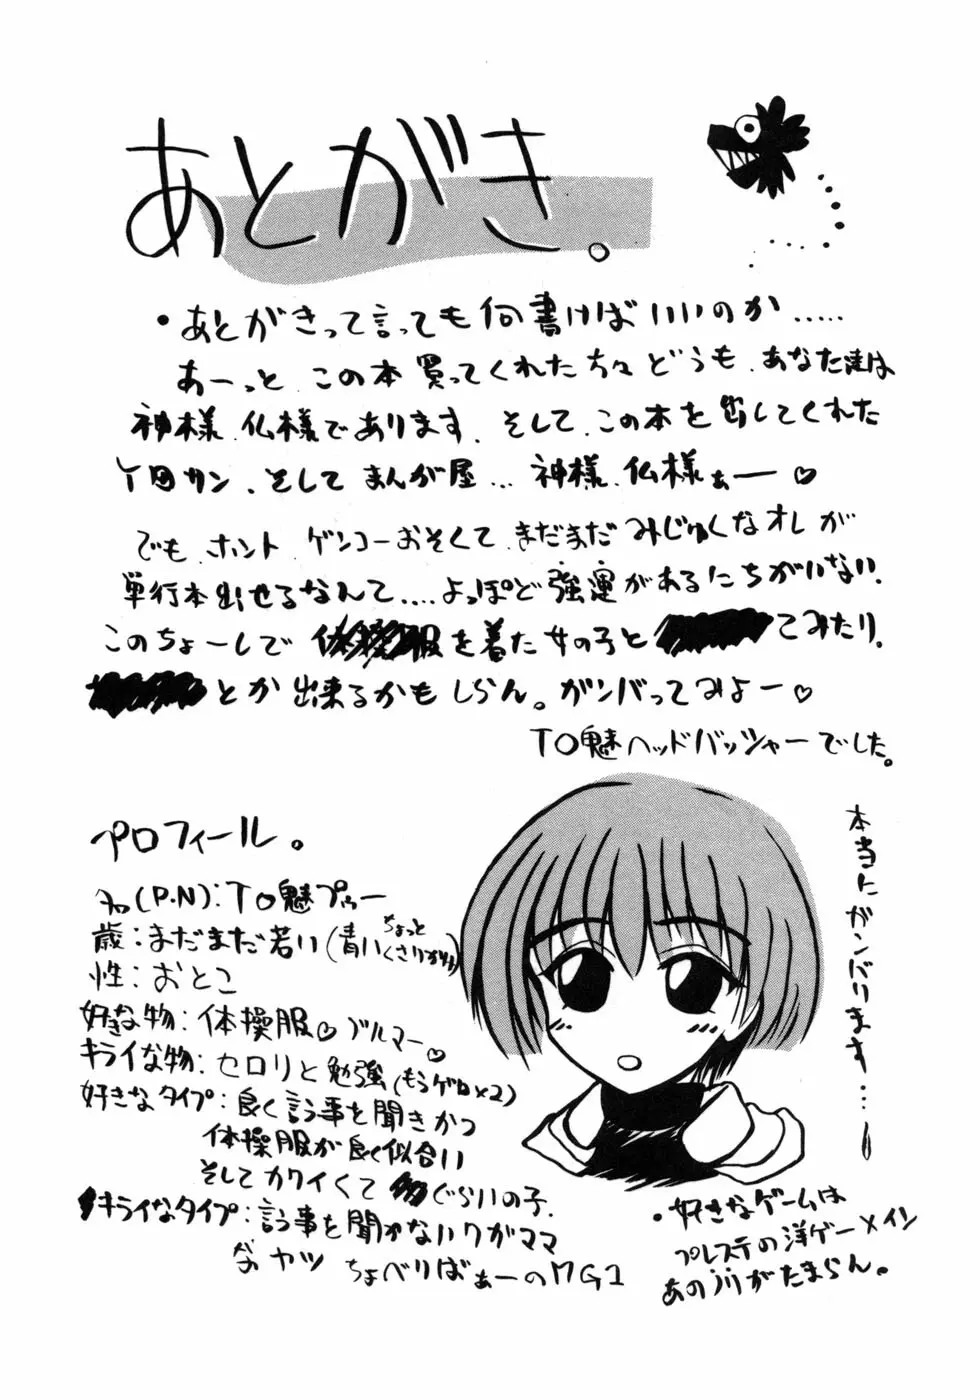 あとがき。
・あとがきって言っても何書けばいいのか.....
あーっと、この本買ってくれた方々どうも、あなた達は
神様、仏様であります、そして、この本を出してくれた
Y田サン、そしてまんが屋...神様、仏様ぁー♡
でも、ホント ゲンコーおそくて、まだまだみじゅくなオレが
単行本出せるなんて....よっぽど強運があるにちがいない、
このちょーしで体操服を着た女の子と てみたり、
とか出来るかもしらん。ガンバってみよー♡
TO魅ヘッドバッシャーでした。
本当にガンバリます...!
プロフィール。
名(P.N):TO魅プゥー
歳:まだまだ若い(青い ちょっとくさりぎみ)
性:おとこ
好きな物:体操服♡ブルマー♡
キライな物:セロリと勉強(もうゲロ×2)
好きなタイプ:良く言う事を聞きかつ
体操服が良く似合い
そしてカワイくて ぐらいの子.
キライなタイプ:言う事を聞かないワガママ
なヤツ ちょべりばぁーのMG1
・好きなゲームは
プレステの洋ゲーメイン
あのノリがたまらん。